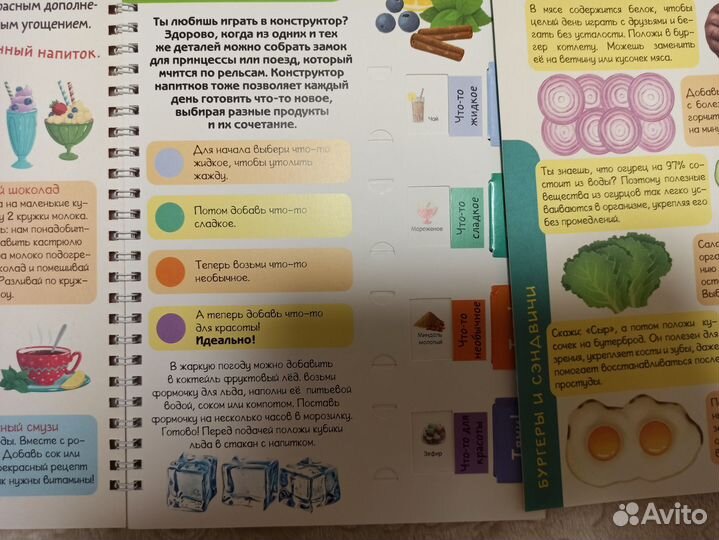 красным дополне-
угощением.
напиток.
шоколад
на маленькие ку-
2 кружки молока.
нам понадобит-
кастрюлю
молоко подогре-
и помешивай
Разливай по круж-
смузи
Вместе с ро-
Добавь сок или
рецепт
нужны витамины!
Ты любишь играть в конструктор?
Здорово, когда из одних и тех
же деталей можно собрать замок
для принцессы или поезд, который
мчится по рельсам. Конструктор
напитков тоже позволяет каждый
день готовить что-то новое,
выбирая разные продукты
и их сочетание.
Для начала выбери что-то
жидкое, чтобы утолить
жажду.
Потом добавь что-то
сладкое.
Теперь возьми что-то
необычное.
А теперь добавь что-то
для красоты!
Идеально!
В жаркую погоду можно добавить
в коктейль фруктовый лёд. Возьми
формочку для льда, наполни её питьевой
водой, соком или компотом. Поставь
формочку на несколько часов в морозилку.
Готово! Перед подачей положи кубики
льда в стакан с напитком.
Чай
Что-то
жидкое
Мороженое
Что-то
сладкое
Миндаль
молотый
Что-то
необычное
Зефир
Что-то для
красоты
В мясе содержится белок, чтобы
целый день играть с друзьями и бе-
гать без усталости. Положи в бур-
гер котлету. Можешь заменить
её на ветчину или кусочек мяса.
с болез
горчит
на мину
Ты знаешь, что огурец на 97% со-
стоит из воды? Поэтому полезные
вещества из огурцов так легко усва-
иваются в организме, укрепляя его
без промедлений.
Скажи: «Сыр», а потом положи ку-
сочек на бутерброд. Он полезен для
зрения, укрепляет кости и зубы, даже
помогает восстанавливаться после
простуды.
БУРГЕРЫ И СЭНДВИЧИ
Avito